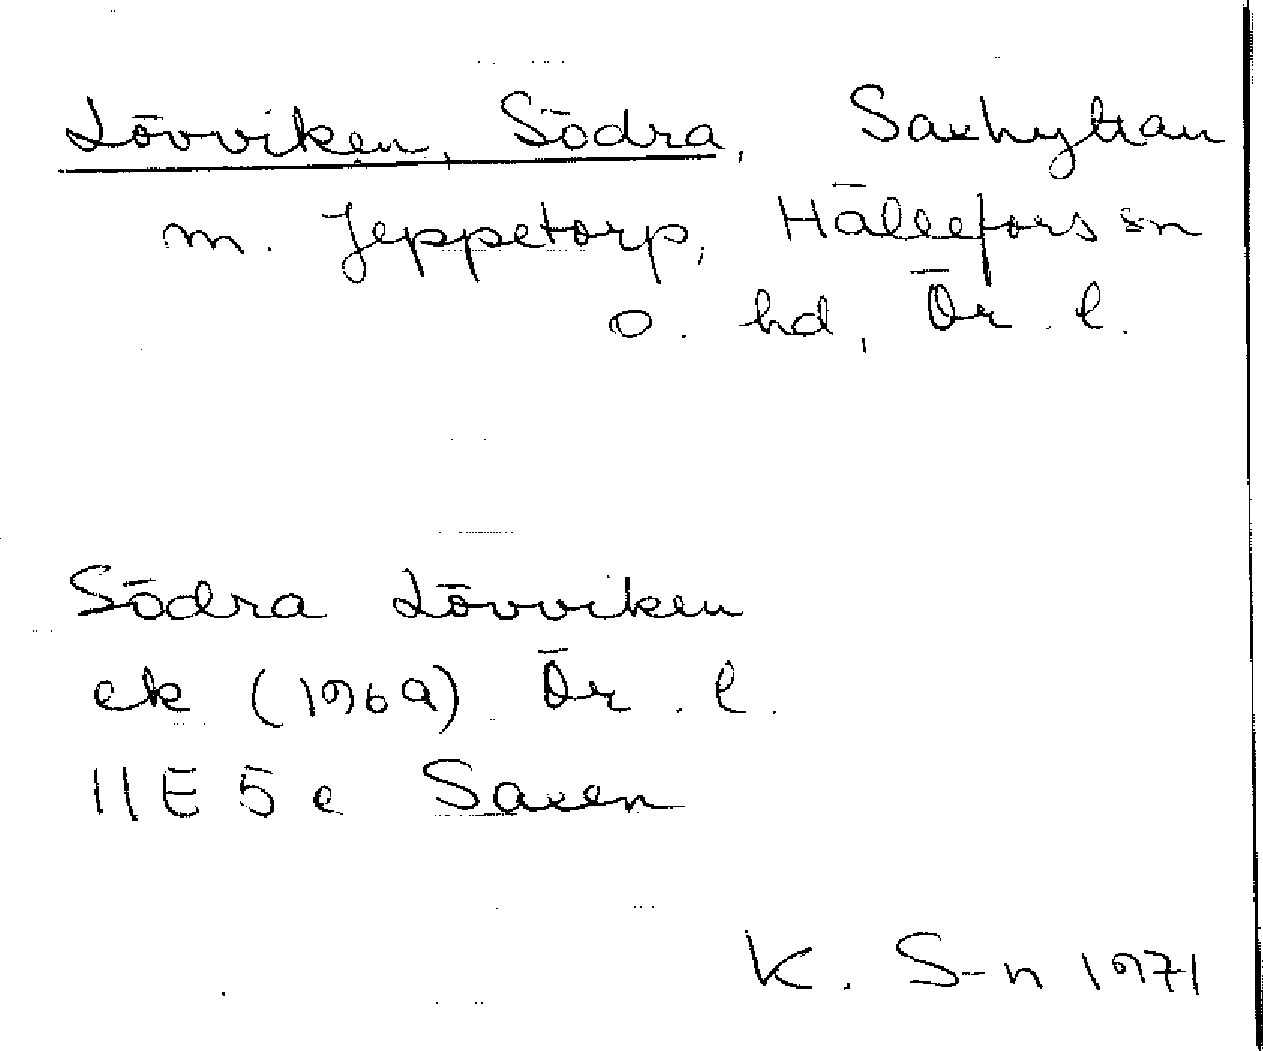 Lövviken, Södra, Saxhyttan
m. Jeppetorp, Hällefors sn
o. hd, Ör. l.
Södra Lövviken
ek (1969) Ör. l.
11E 5e Saxen
K. S-n 1971